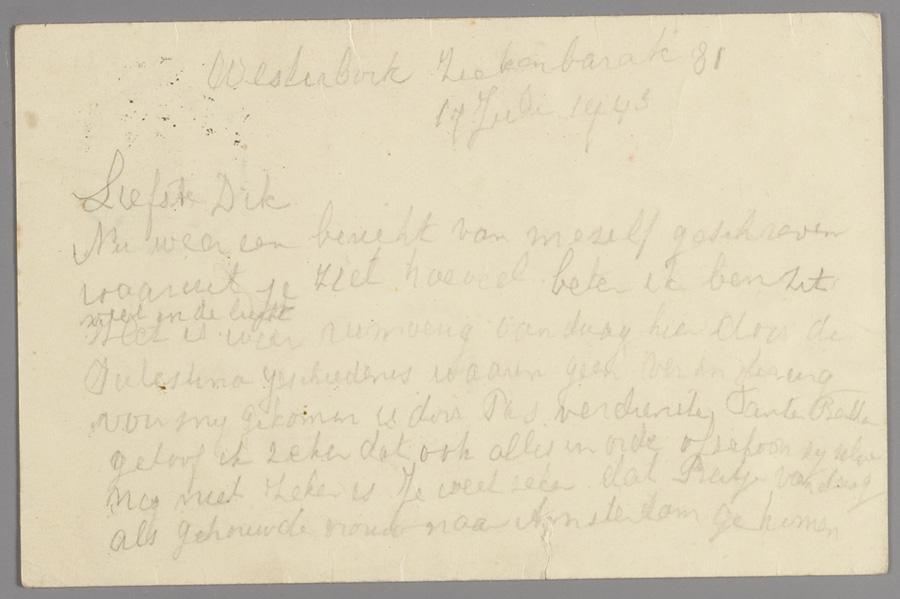 Westerbork Ziekenbarak 81
17 Juli 1943
Liefste Dik
Nu weer een bericht van mezelf geschreven
waaruit je ziet hoeveel beter ik ben zit
weer in de lucht
Het is weer rumoerig vandaag hier door de
Palestina geschiedenis waarin geen verandering
voor my gekomen is door verdienste, Tante
geloof ik zeker dat ook alles in orde ofschoon zy
nog niet zeker is Je weet zeker dat vandaag
als gehouwde vrouw naar Amsterdam gekomen